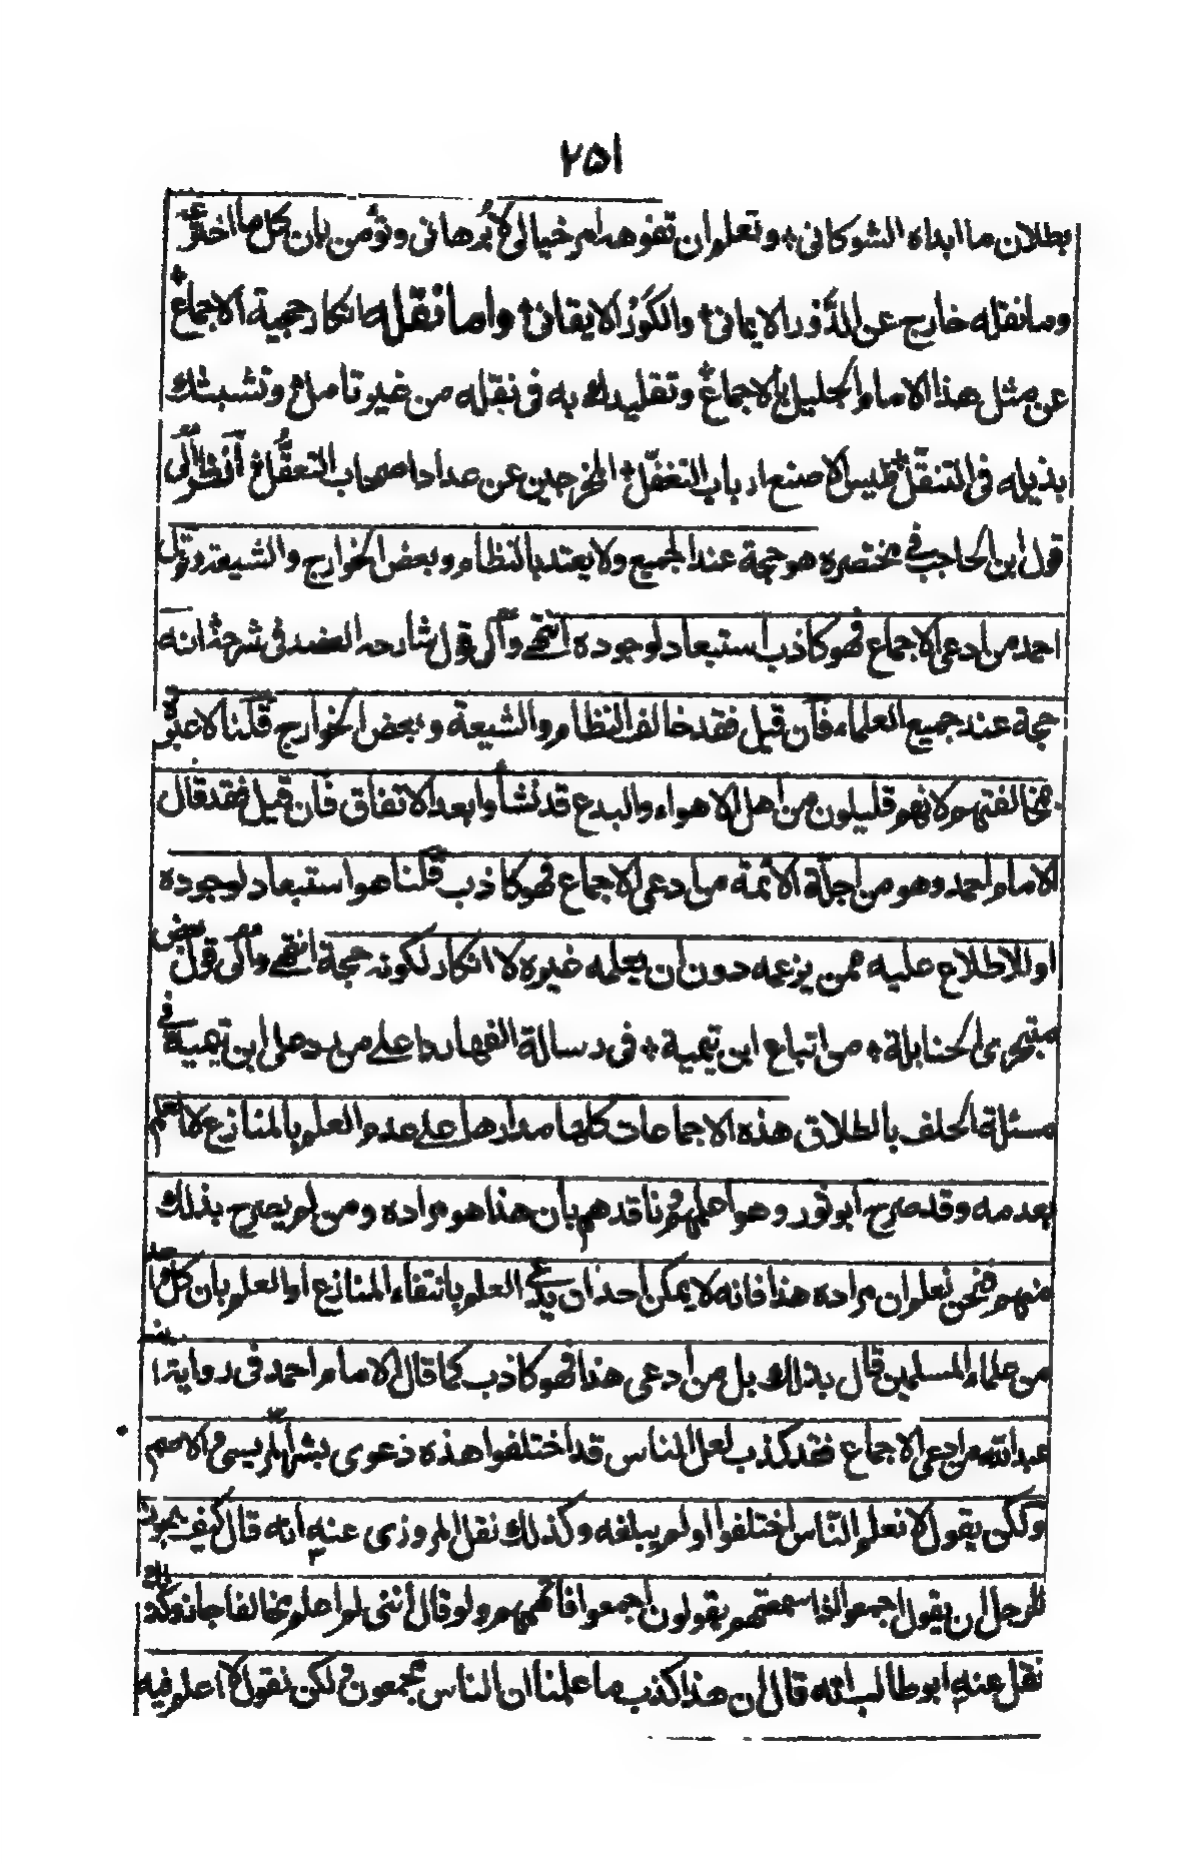 ٢٥١
بطلان ما ابداه الشوكانى، وتعلم ان تفوهه امر خيالى لا برهانى وتؤمن بان كل ما اخترعه
وما نقله خارج عن الذور الايمانى، والكور الايقانى، واما نقله انكار حجية الاجماع،
عن مثل هذا الامام الجليل بالاجماع، وتقليدك به فى نقله من غير تامل، وتشبثك
بذيله فى التنقل، فليس الا صنع ارباب التغفل، المخرجين عن عداد اصحاب التعقل، انظر الى
قول ابن الحاجب فى مختصره هو حجة عند الجميع ولا يعتد بالنظام وبعض الخوارج والشيعة وقول
احمد من ادعى الاجماع فهو كاذب استبعاد لوجوده انتهى والى قول شارحه العضد فى شرحه انه
حجة عند جميع العلماء فان قيل فقد خالف النظام والشيعة وبعض الخوارج قلنا لا عبرة
بمخالفتهم لانهم قليلون من اهل الاهواء والبدع قد نشأوا بعد الاتفاق فان قيل فقد قال
الامام احمد وهو من اجلة الائمة من ادعى الاجماع فهو كاذب قلنا هو استبعاد لوجوده
او للاطلاع عليه ممن يزعمه دون ان يعلمه غيره لا انكار لكونه حجة انتهى والى قول بعض
متبحرى الحنابلة، من اتباع ابن تيمية، فى رسالة الفها ردا على من رد على ابن تيمية فى
مسئلة الحلف بالطلاق هذه الاجماعات كلها مدارها على عدم العلم بالمنازع لا العلم
بعدمه وقد صرح ابو ثور وهو اعلمهم ناقدهم بان هذا هو مراده ومن لم يصرح بذلك
منهم فنحن نعلم ان مراده هذا فانه لا يمكن احد ان يدعى العلم بانتفاء المنازع او العلم بان كل واحد
من علماء المسلمين قال بذلك بل من ادعى هذا فهو كاذب كما قال الامام احمد فى رواية ابنه
عبد الله من ادعى الاجماع فقد كذب لعل الناس قد اختلفوا هذه دعوى بشر المريسى والاصم
ولكن يقول لا نعلم الناس اختلفوا او لم يبلغه وكذلك نقل المروزى عنه انه قال كيف يجوز
للرجل ان يقول اجمعوا اذا سمعتهم يقولون اجمعوا فاتهمهم ولو قال اننى لم اعلم مخالفا جاز وكذلك
نقل عنه ابو طالب انه قال ان هذا كذب ما علمنا ان الناس مجمعون ولكن نقول لا اعلم فيه